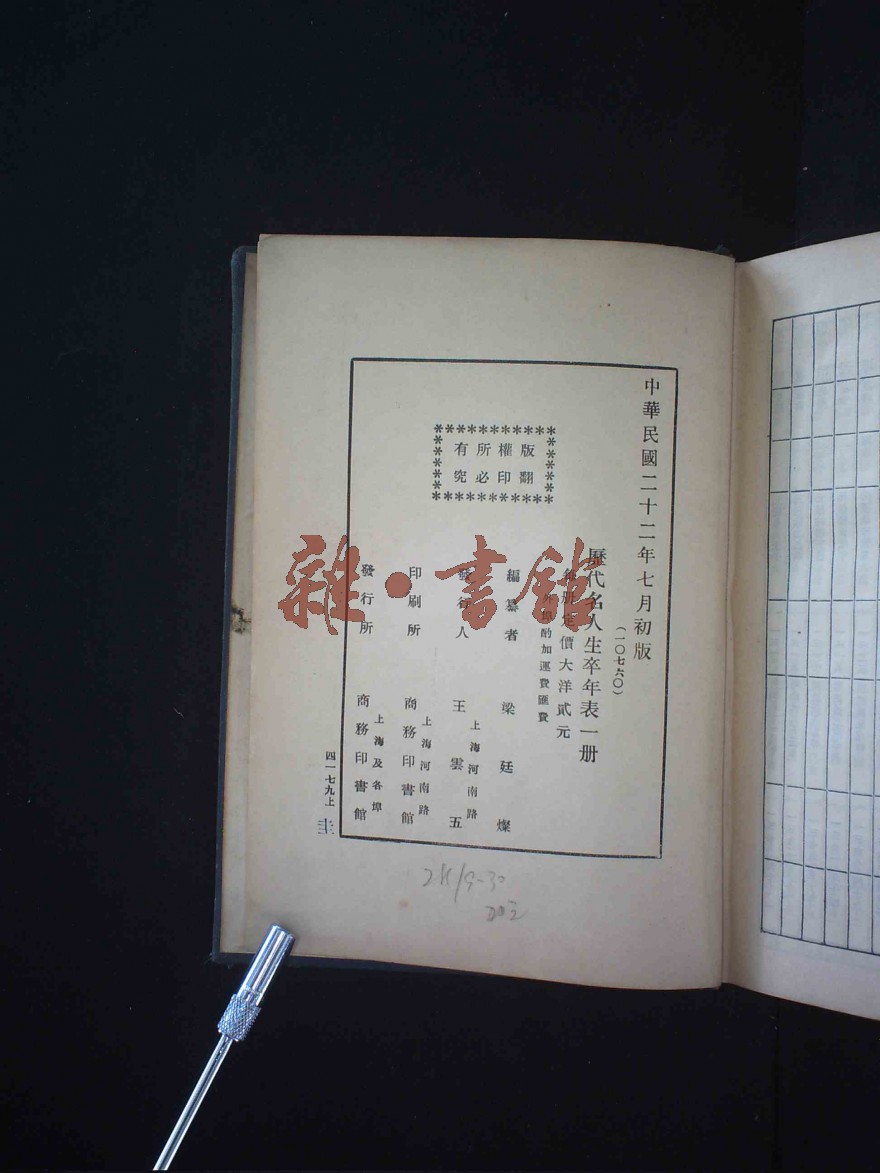 中華民國二十二年七月初版
(一〇七六〇)
歷代名人生卒年表一册
每册定價大洋貳元
外埠酌加運費匯費
編纂者 梁廷燦
發行人 王雲五
上海河南路
印刷所 商務印書館
上海河南路
發行所 商務印書館
上海及各埠
版權所有
翻印必究
四一七九上
圭
雜·書館